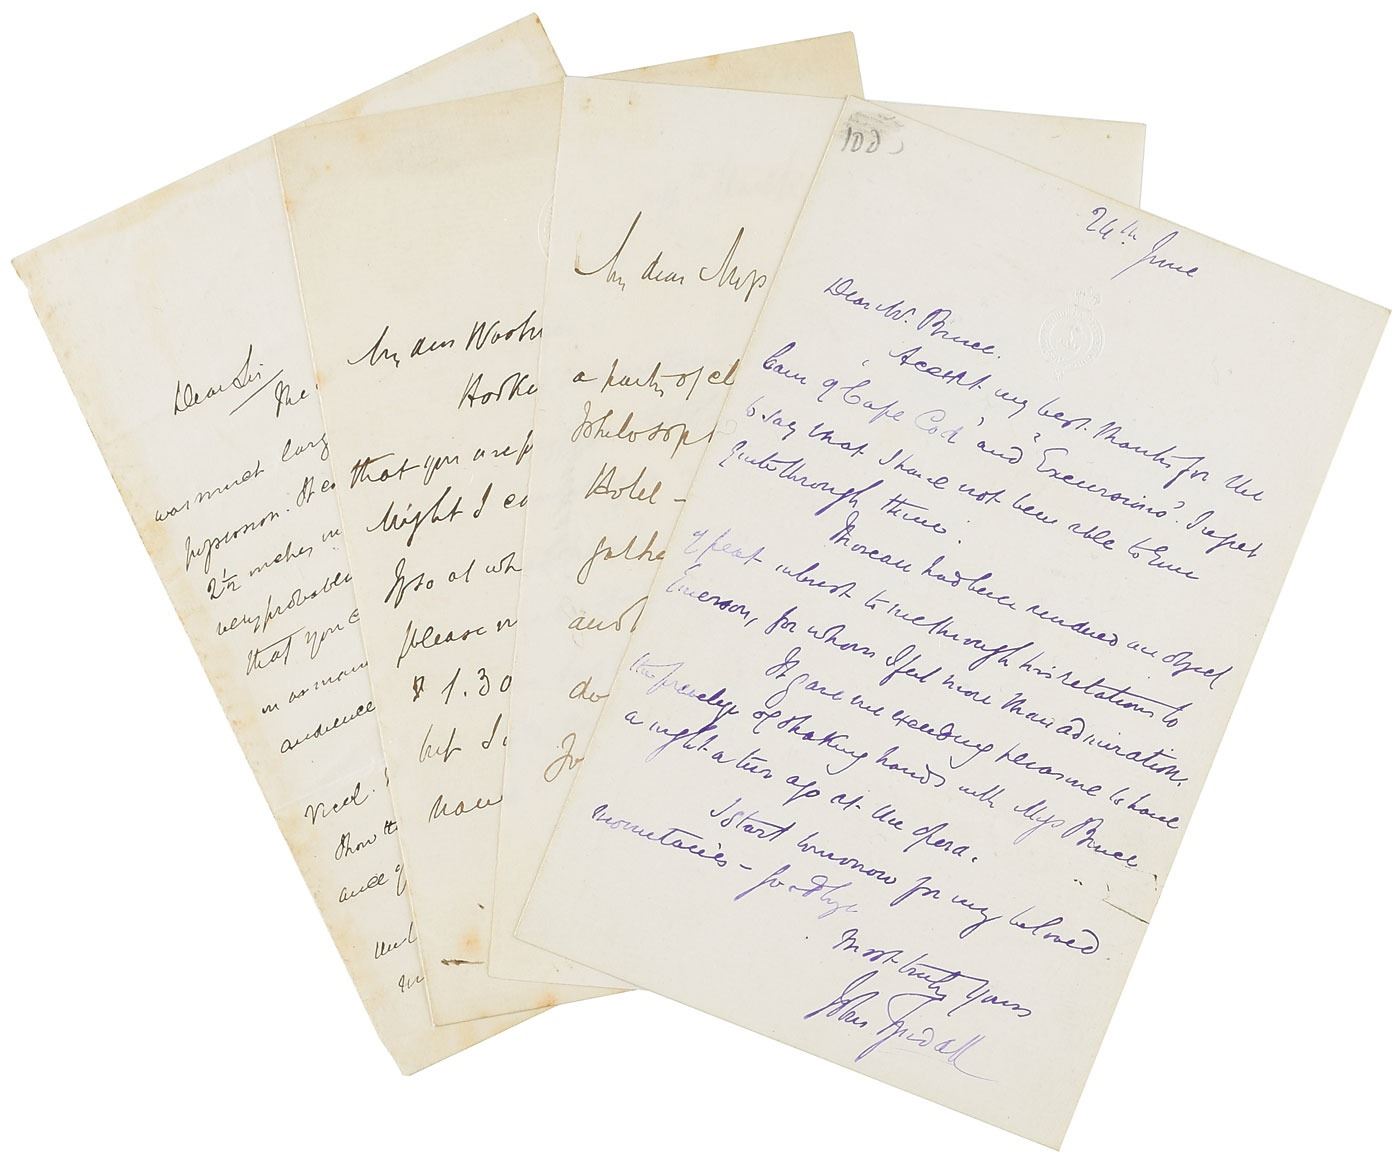 Dear Sir
The
was much larg
impression. It co
2½ inches in
very probable
that you c
in as man
audience
Show th
ance of
My dear Woodw
Hooke
that you are p
Might I co
If so at wh
please
1.30
but Si
have
My dear Miss
a party of cl
Philosoph
Hotel –
gathe
and
do
Jo
100
24th June
Dear Mr. Bruce.
Accept my best thanks for the
loan of 'Cape Cod' and "Excursions". I regret
to say that I have not been able to
quite through them.
Thoreau had been rendered an object
of great interest to me through his relations to
Emerson, for whom I feel more than admiration.
It gave me exceeding pleasure to have
the privilege of shaking hands with Miss Bruce
a night or two ago at the opera.
I start tomorrow for my beloved
mountains – Goodbye
Most truly yours
John Tyndall